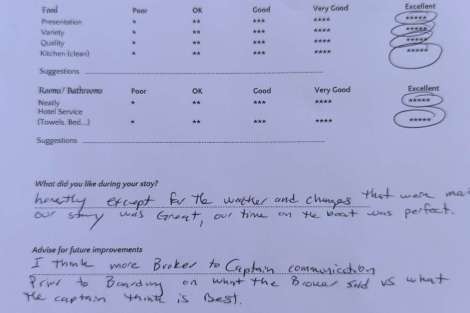 Food Poor OK Good Very Good Excellent
Presentation * ** *** **** *****
Variety * ** *** **** *****
Quality * ** *** **** *****
Kitchen (clean) * ** *** **** *****
Suggestions
Rooms/ Bathrooms Poor OK Good Very Good Excellent
Neatly * ** *** **** *****
Hotel Service
(Towels, Bed...) * ** *** **** *****
Suggestions
What did you like during your stay?
honestly except for the weather and changes that were
our stay was Great, our time on the boat was perfect.
Advise for future improvements
I think more Broker to Captain communication
Prior to Boarding on what the Broker said vs what
the captain think is Best.